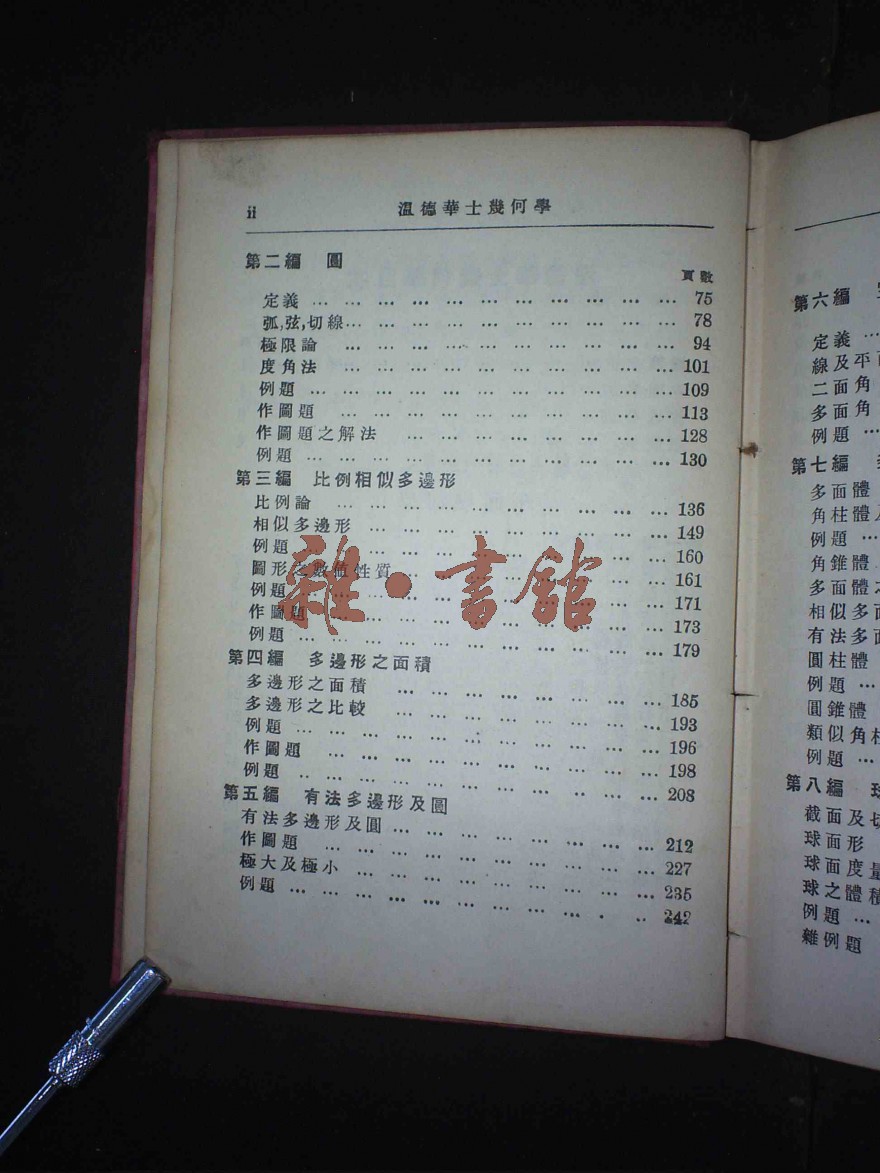 ii 溫德華士幾何學
第二編 圓
頁數
定義 … … … … … … … … … … … 75
弧,弦,切線… … … … … … … … … … 78
極限論 … … … … … … … … … … 94
度角法 … … … … … … … … … … 101
例題 … … … … … … … … … … … 109
作圖題 … … … … … … … … … … 113
作圖題之解法 … … … … … … … … 128
例題 … … … … … … … … … … … 130
第三編 比例相似多邊形
比例論 … … … … … … … … … … 136
相似多邊形 … … … … … … … … … 149
例題 … … … … … … … … … … … 160
圖形之數值性質 … … … … … … … … 161
例題 … … … … … … … … … … … 171
作圖題 … … … … … … … … … … 173
例題 … … … … … … … … … … … 179
第四編 多邊形之面積
多邊形之面積 … … … … … … … … 185
多邊形之比較 … … … … … … … … 193
例題 … … … … … … … … … … … 196
作圖題 … … … … … … … … … … 198
例題 … … … … … … … … … … … 208
第五編 有法多邊形及圓
有法多邊形及圓 … … … … … … … … 212
作圖題 … … … … … … … … … … 227
極大及極小 … … … … … … … … … 235
例題 … … … … … … … … … … … 242
雜·書館
第六編
定義 …
線及平
二面角
多面角
例題 …
第七編
多面體
角柱體
例題 …
角錐體
多面體
相似多面
有法多面
圓柱體
例題 …
圓錐體
類似角柱
例題 …
第八編 球
截面及切
球面形
球面度量
球之體積
例題 …
雜例題